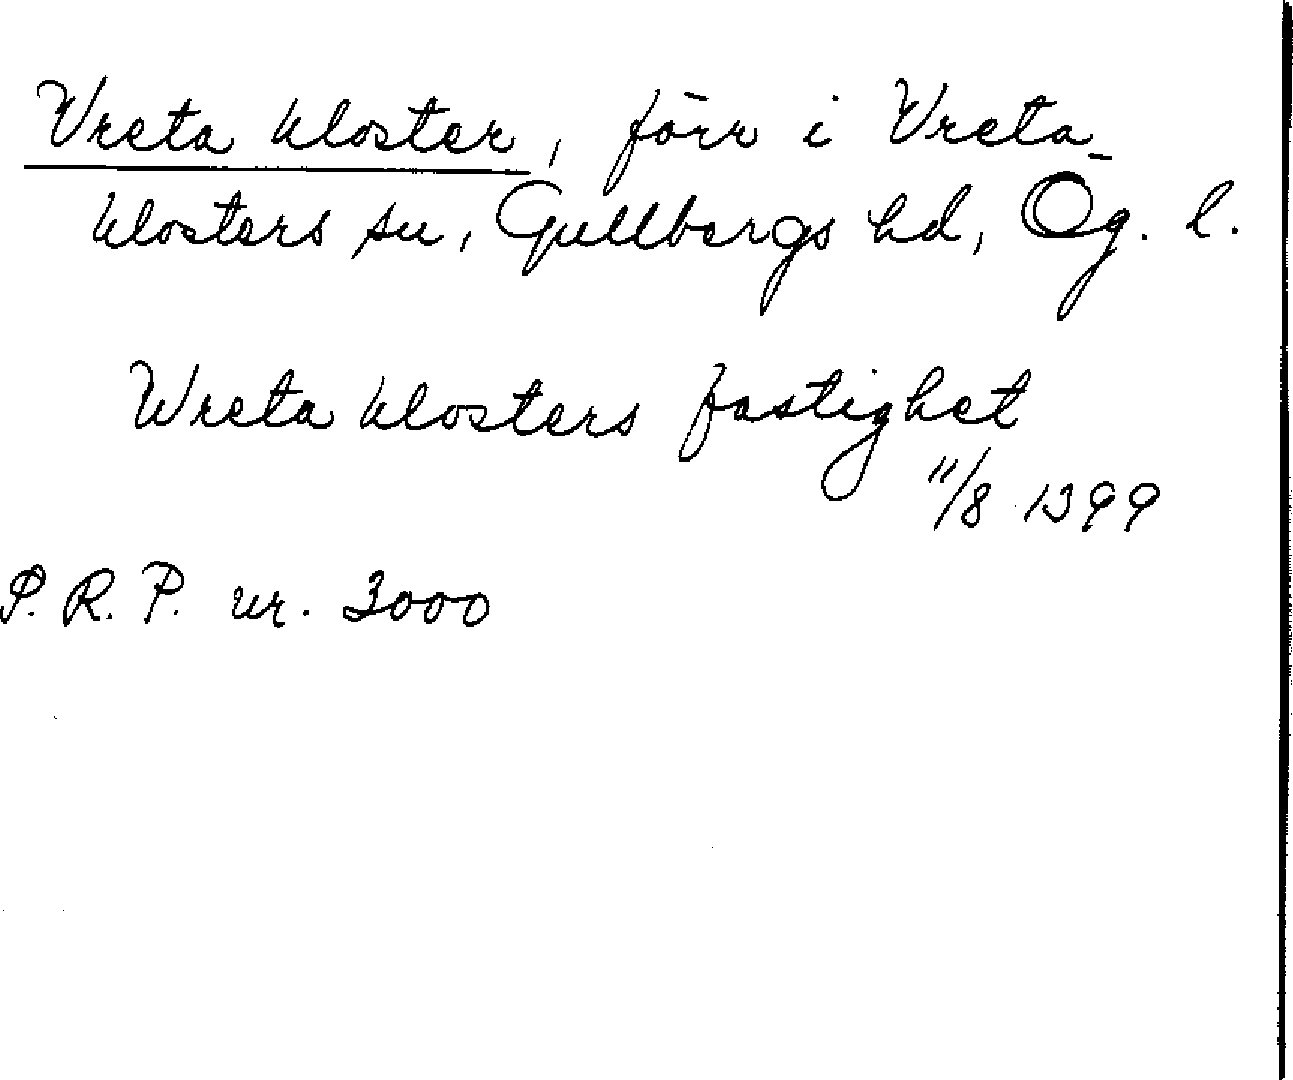 Vreta kloster, förr i Vreta-
klosters sn, Gullbergs hd, Ög. l.
Wreta klosters fastighet
11/8 1399
S. R. P. nr. 3000